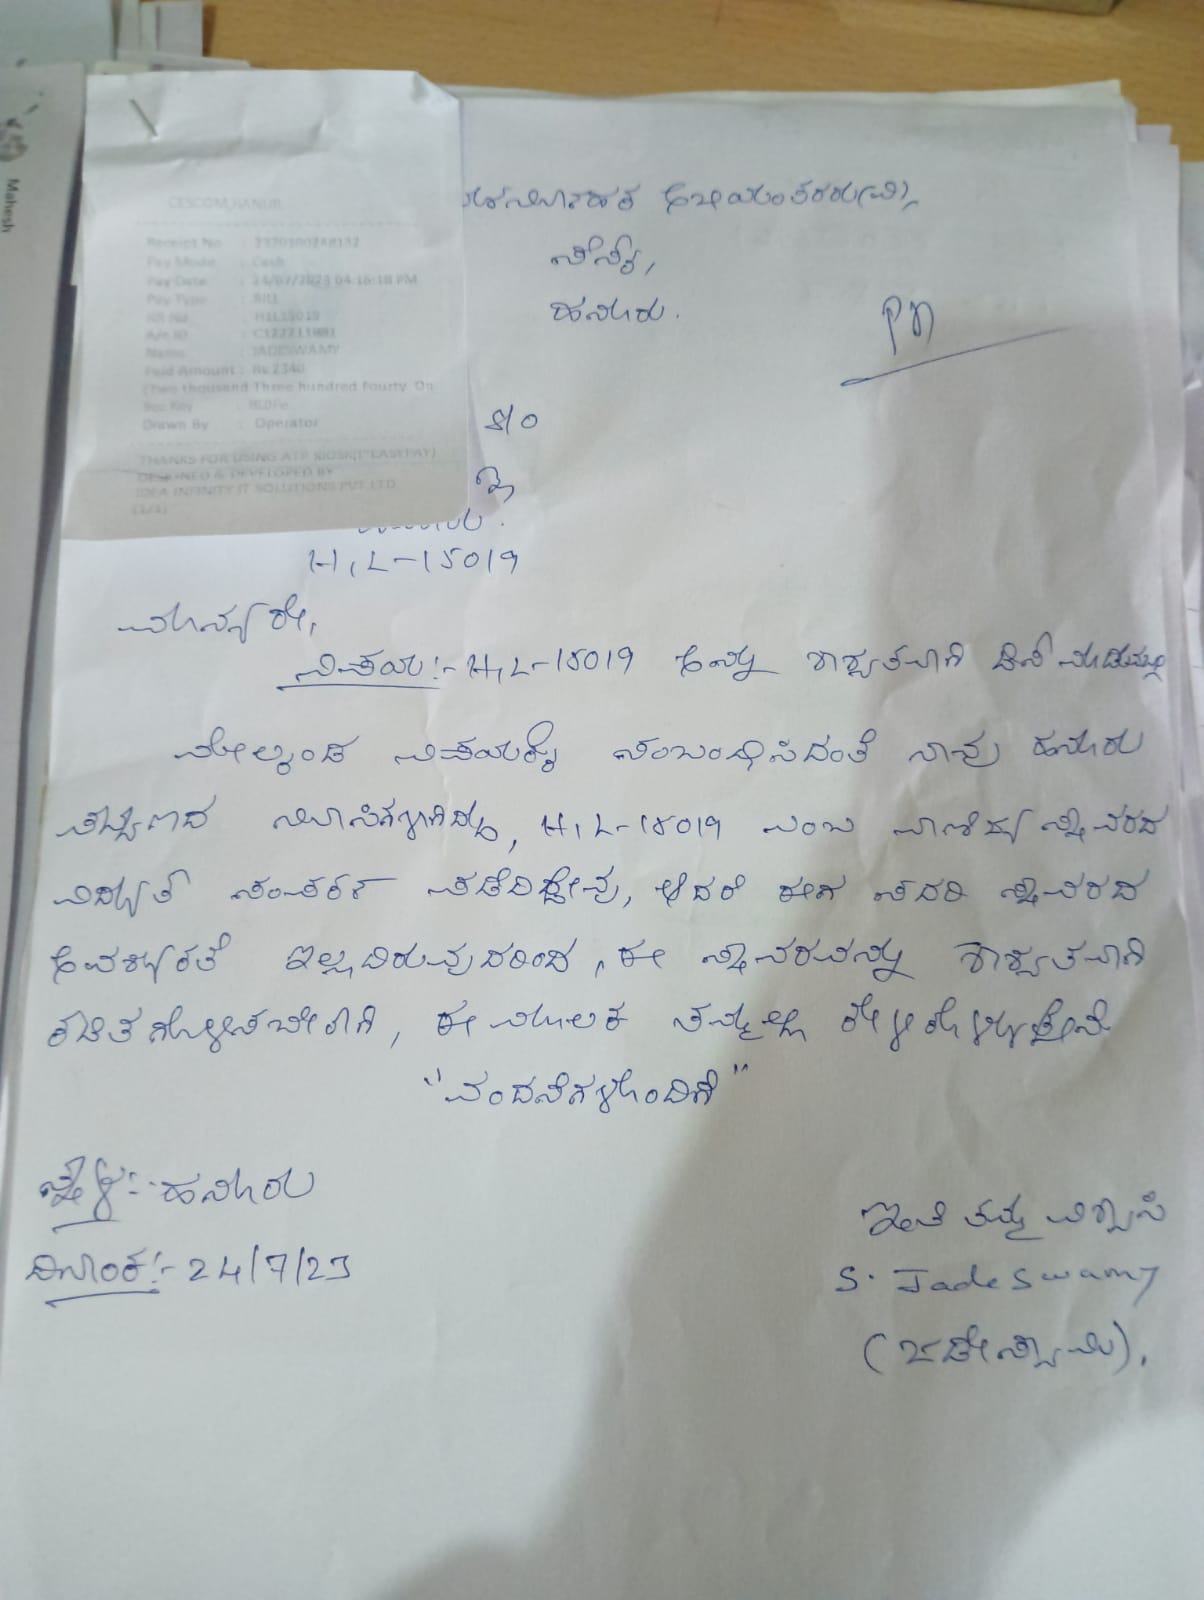 Mahesh
CESCOM,HANUR
Receipt No :
Pay Mode : Cash
Pay Date : 24/07/2023 04:16:18 PM
Pay Type : BILL
RR No : H1L15019
A/c ID :
Name : JADESWAMY
Paid Amount : Rs.2340
(Two thousand Three hundred Fourty On
Drawn By : Operator
THANKS FOR USING ATP KIOSK("EASYPAY)
DESIGNED & DEVELOPED BY
IDEA INFINITY IT SOLUTIONS PVT LTD
(1/1)
ಅಭಿಯಂತರರು(ವಿ),
ಸೆಸ್ಕ್,
ಹನೂರು.
S/o
H1L-15019
ಮಾನ್ಯರೇ,
ವಿಷಯ:- H1L-15019 ಅನ್ನು ಶಾಶ್ವತವಾಗಿ
ಮೇಲ್ಕಂಡ ವಿಷಯಕ್ಕೆ ಸಂಬಂಧಿಸಿದಂತೆ ನಾವು ಹನೂರು
ಪಟ್ಟಣದ ನಿವಾಸಿಗಳಾಗಿದ್ದು, H1L-15019 ಎಂಬ ವಾಣಿಜ್ಯ ಸ್ಥಾವರದ
ವಿದ್ಯುತ್ ಸಂಪರ್ಕ ಪಡೆದಿದ್ದೇವು, ಆದರೆ ಈಗ ಸದರಿ ಸ್ಥಾವರದ
ಅವಶ್ಯಕತೆ ಇಲ್ಲದಿರುವುದರಿಂದ, ಈ ಸ್ಥಾವರವನ್ನು ಶಾಶ್ವತವಾಗಿ
ಕಡಿತಗೊಳ್ಳಿಸಬೇಕಾಗಿ, ಈ ಮೂಲಕ ತಮ್ಮಲ್ಲಿ ಕೇಳಿಕೊಳ್ಳುತ್ತೇನೆ
"ವಂದನೆಗಳೊಂದಿಗೆ"
ಸ್ಥಳ:- ಹನೂರು
ದಿನಾಂಕ:- 24/7/23
ಇಂತಿ ತಮ್ಮ ವಿಶ್ವಾಸಿ
S. Jadeswamy
(ಜಡೇಸ್ವಾಮಿ).